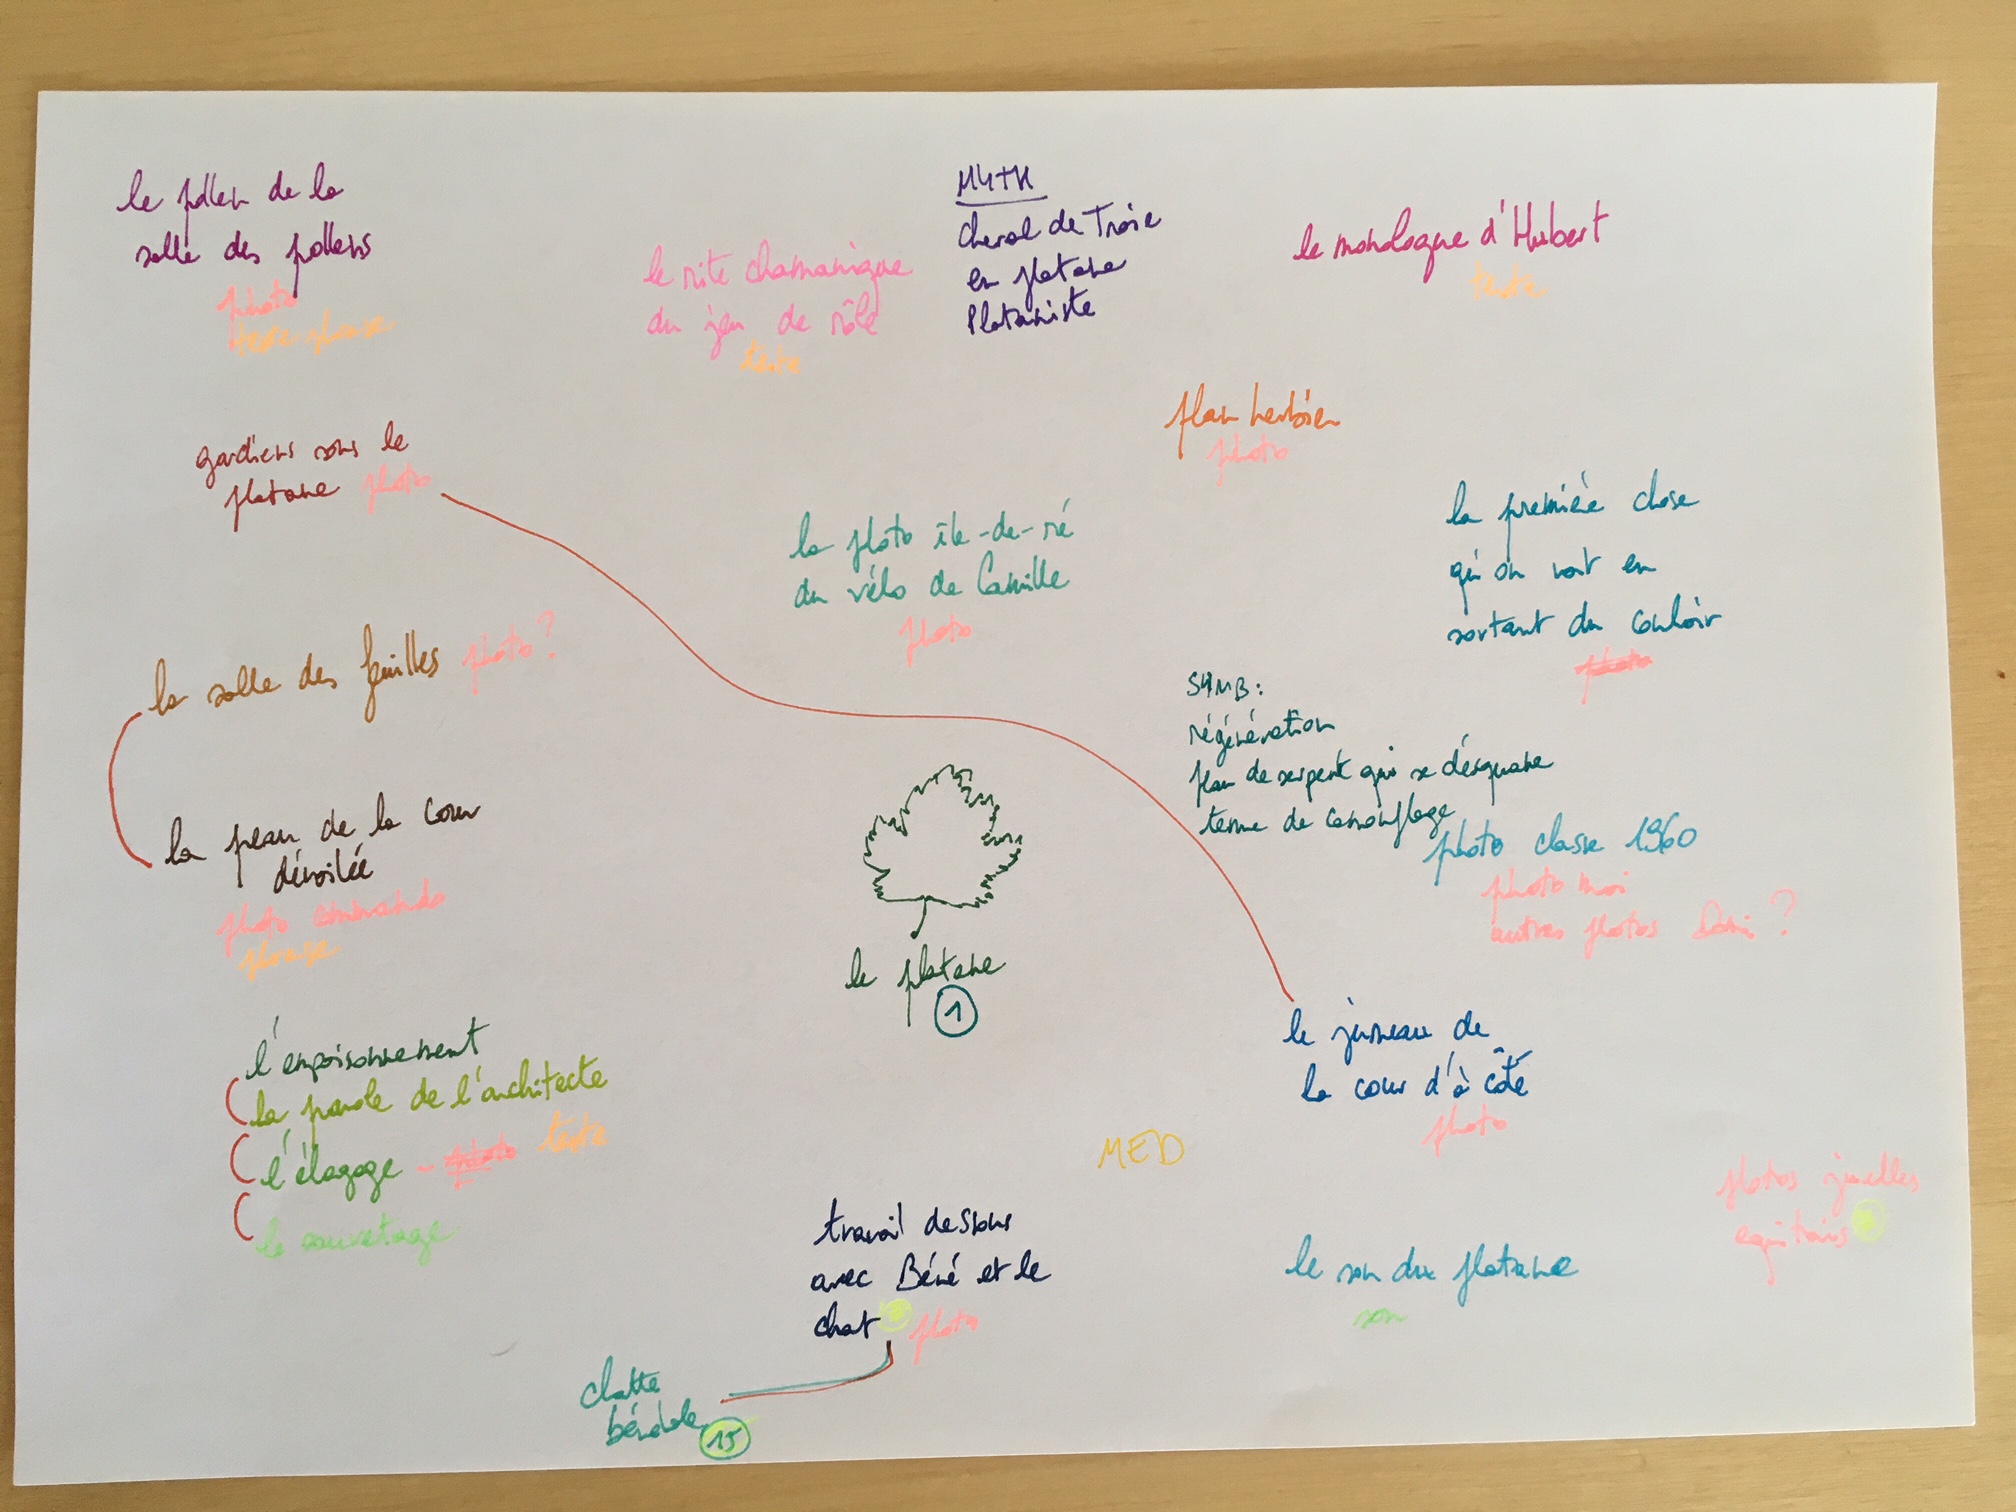 le pollen de la
salle des pollens
photo
texte-phrase
le rite chamanique
du jeu de rôle
texte
MYTH
cheval de Troie
en platane
Plataniste
le monologue d'Hubert
texte
plan herbier
photo
gardiens sous le
platane photo
la photo île-de-ré
du vélo de Camille
photo
la première chose
qu'on voit en
sortant du couloir
photo
la salle des feuilles photo?
SYMB:
régénération
peau de serpent qui se désquame
tenue de camouflage
photo classe 1960
photo moi
autres photos ?
la peau de la cour
dévoilée
photo commando
phrase
le platane
1
le jumeau de
la cour d'à côté
photo
l'empoisonnement
la parole de l'architecte
l'élagage - photo texte
le sauvetage
MED
travail dessous
avec Béné et le
chat photo
le son du platane
son
photos jumelles
chatte
bénévole
15